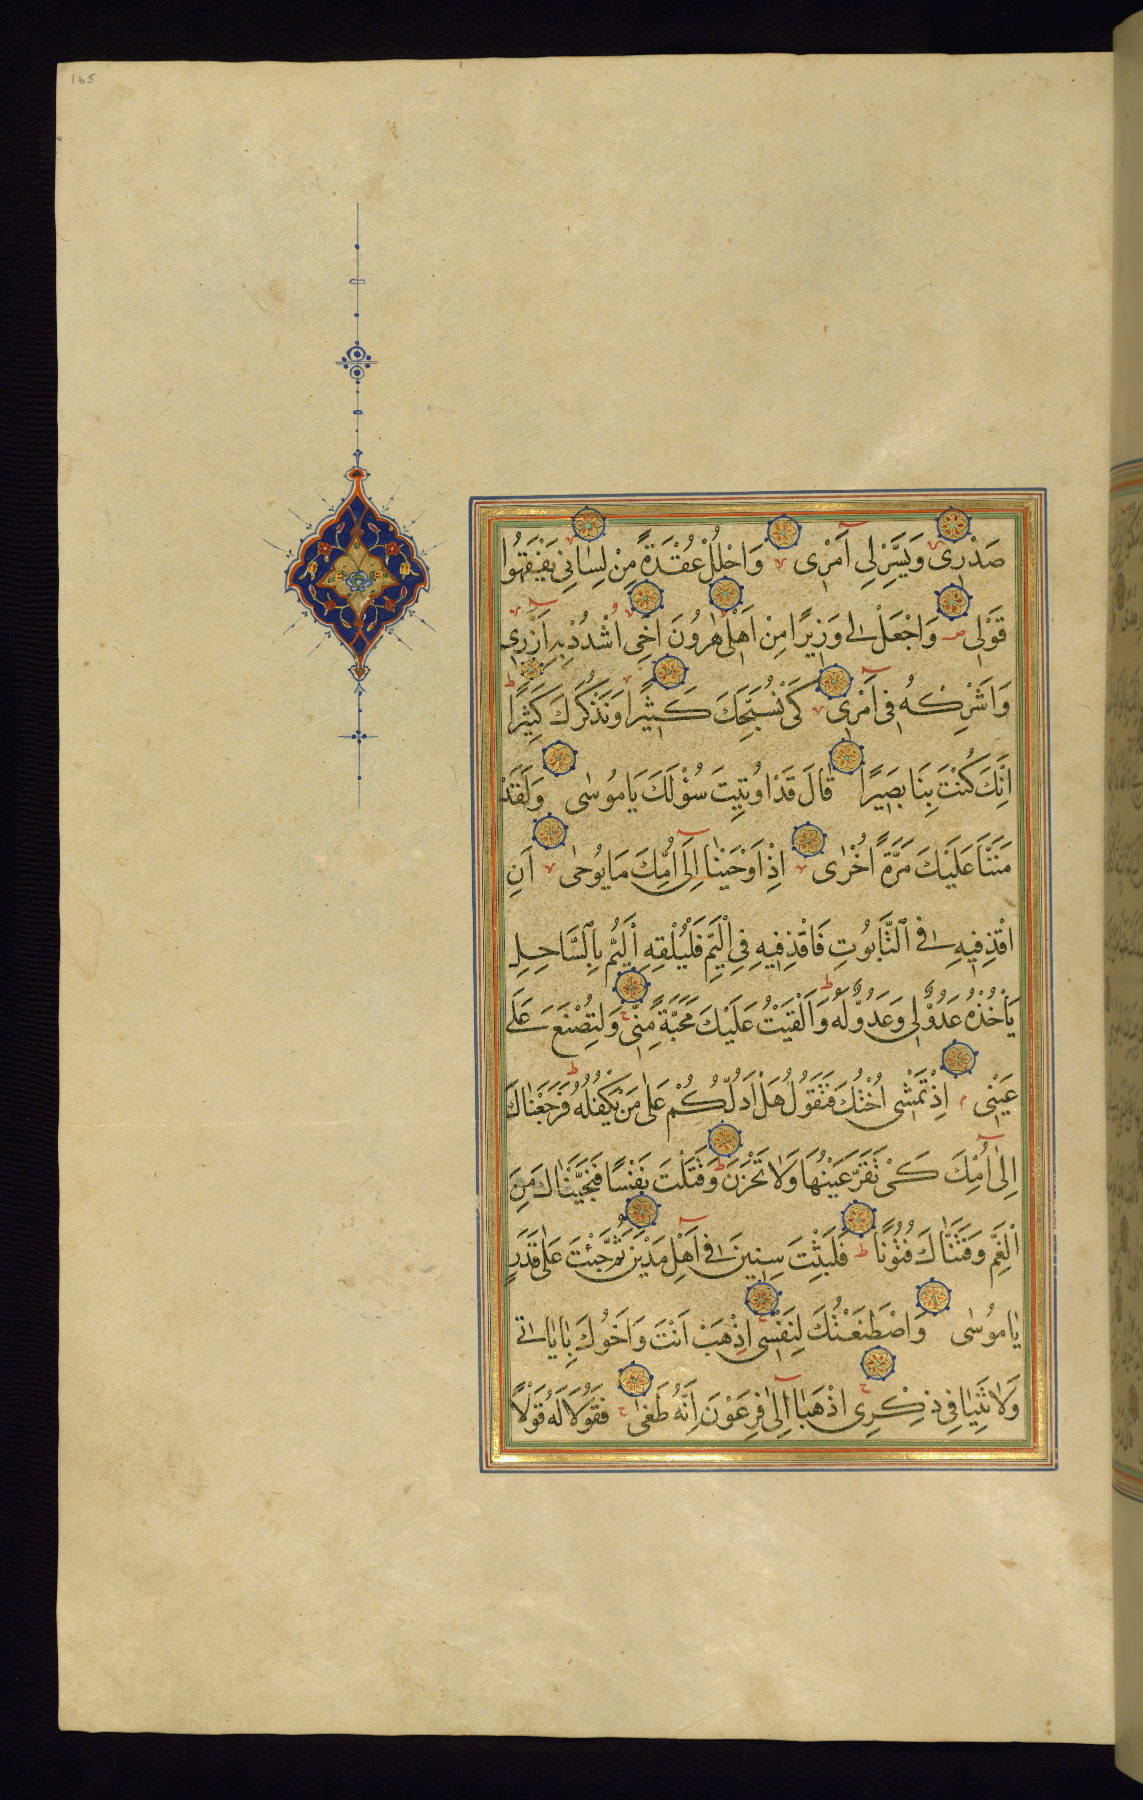 165
صَدْرِى وَيَسِّرْلِى اَمْرِى وَاحْلُلْ عُقْدَةً مِنْ لِسَانِى يَفْقَهُوا
قَوْلِى وَاجْعَلْ لِى وَزِيرًا مِنْ اَهْلِى هٰرُونَ اَخِى اشْدُدْ بِهِ اَزْرِى
وَاَشْرِكْهُ فِى اَمْرِى كَىْ نُسَبِّحَكَ كَثِيرًا وَنَذْكُرَكَ كَثِيرًا
اِنَّكَ كُنْتَ بِنَا بَصِيرًا قَالَ قَدْ اوُتِيتَ سُؤْلَكَ يَامُوسٰى وَلَقَدْ
مَنَنَّا عَلَيْكَ مَرَّةً اُخْرٰى اِذْ اَوْحَيْنَا اِلٰى اُمِّكَ مَا يُوحٰى اَنِ
اقْذِفِيهِ فِى التَّابُوتِ فَاقْذِفِيهِ فِى الْيَمِّ فَلْيُلْقِهِ الْيَمُّ بِالسَّاحِلِ
يَأْخُذْهُ عَدُوٌّ لِى وَعَدُوٌّ لَهُ وَاَلْقَيْتُ عَلَيْكَ مَحَبَّةً مِنِّى وَلِتُصْنَعَ عَلٰى
عَيْنِى اِذْ تَمْشِى اُخْتُكَ فَتَقُولُ هَلْ اَدُلُّكُمْ عَلٰى مَنْ يَكْفُلُهُ فَرَجَعْنَاكَ
اِلٰى اُمِّكَ كَىْ تَقَرَّ عَيْنُهَا وَلَا تَحْزَنَ وَقَتَلْتَ نَفْسًا فَنَجَّيْنَاكَ مِنَ
الْغَمِّ وَفَتَنَّاكَ فُتُونًا فَلَبِثْتَ سِنِينَ فِى اَهْلِ مَدْيَنَ ثُمَّ جِئْتَ عَلٰى قَدَرٍ
يَامُوسٰى وَاصْطَنَعْتُكَ لِنَفْسِى اِذْهَبْ اَنْتَ وَاَخُوكَ بِاٰيَاتِى
وَلَا تَنِيَا فِى ذِكْرِى اذْهَبَا اِلٰى فِرْعَوْنَ اِنَّهُ طَغٰى فَقُولَا لَهُ قَوْلًا